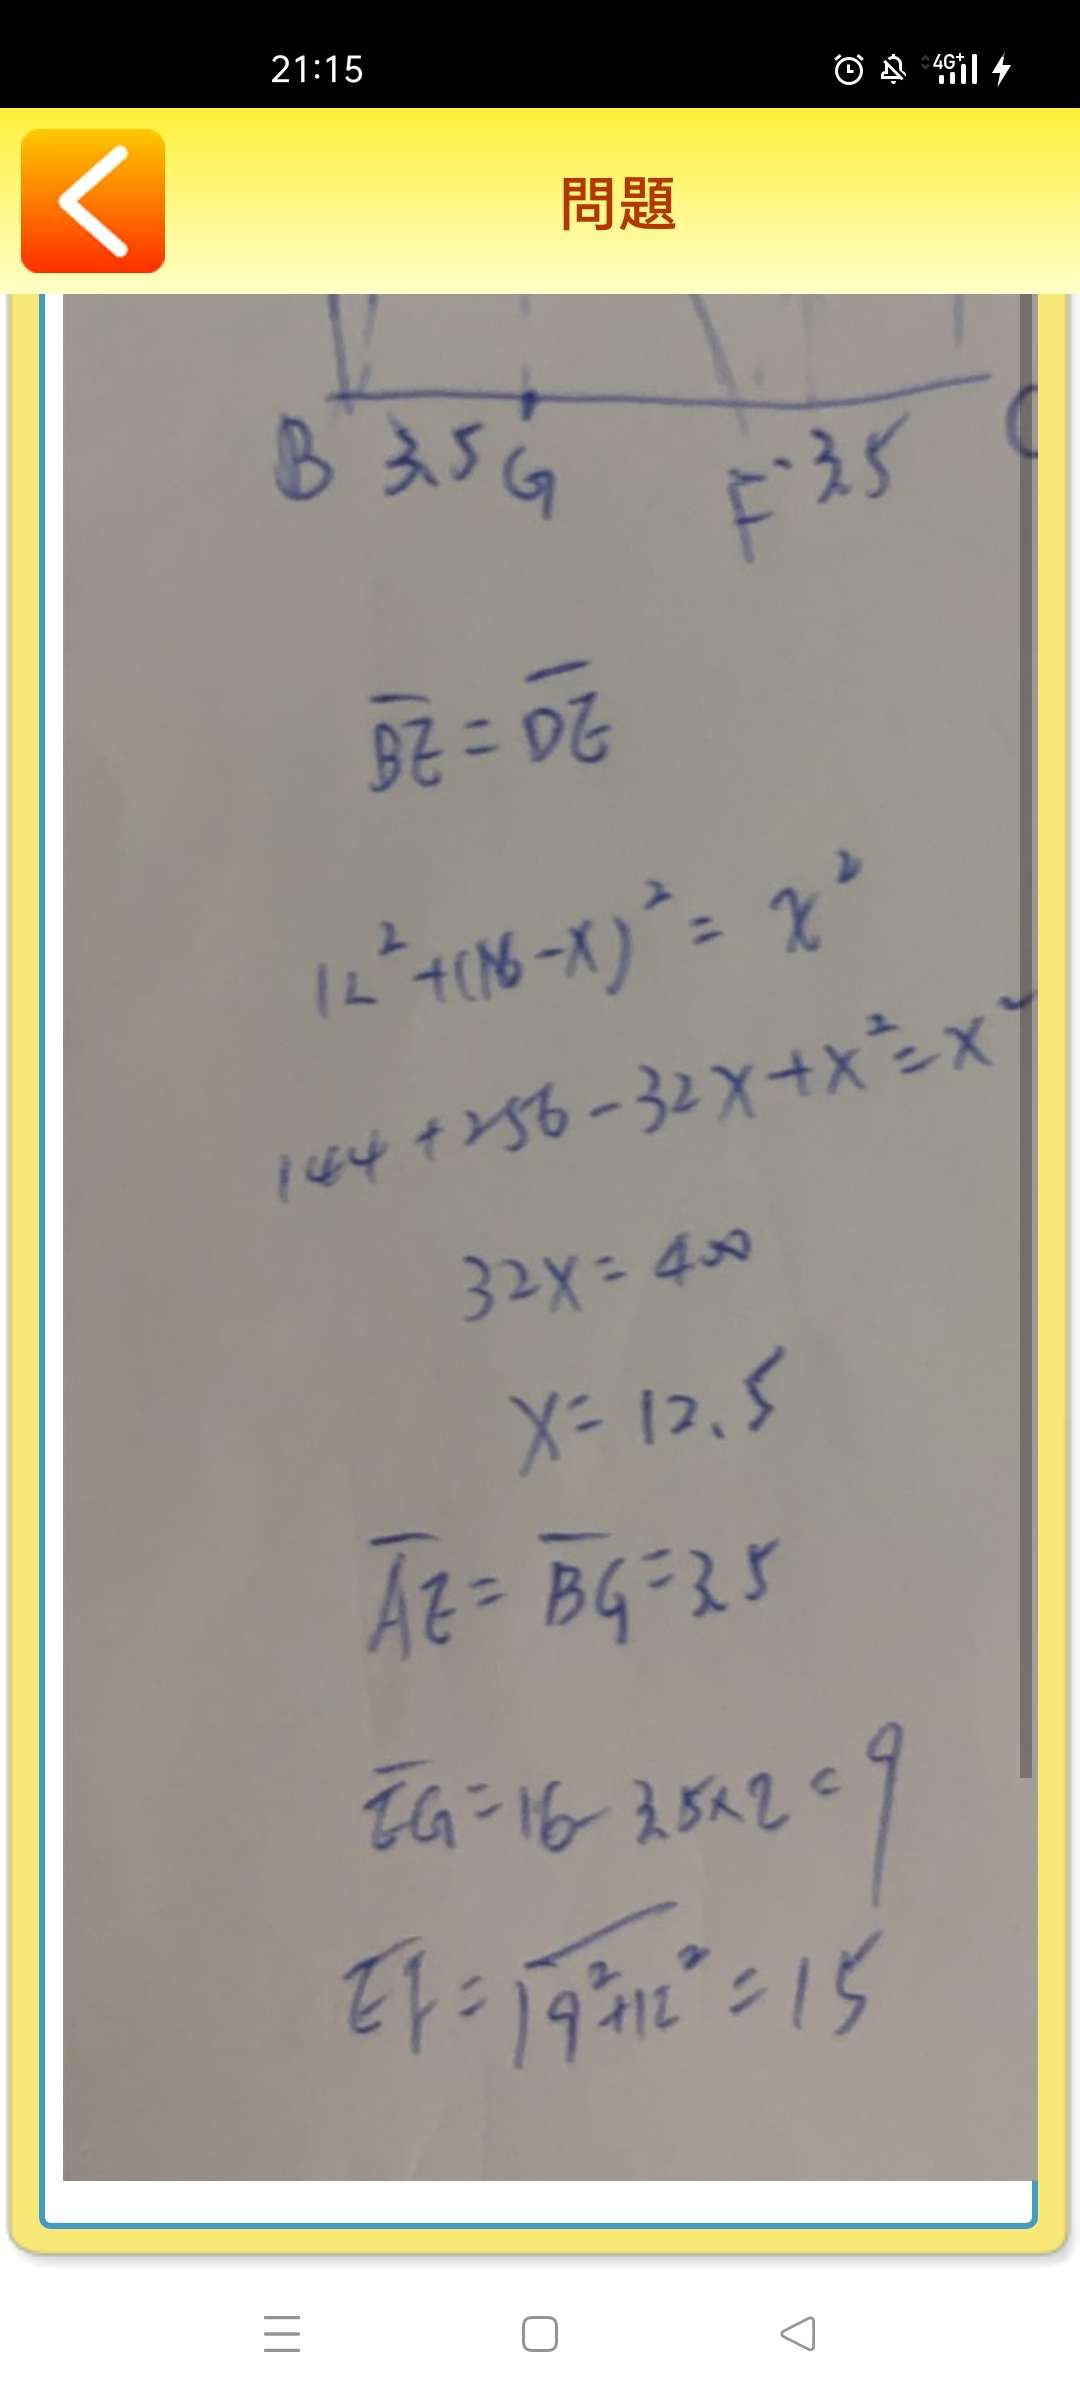 21:15
4G+
問題
B 3.5 G F 3.5 C
BE = DE
12² + (16-x)² = x²
144 + 256 - 32x + x² = x²
32x = 400
x = 12.5
AE = BG = 3.5
EG = 16 - 3.5 × 2 = 9
EF = √9²+12² = 15